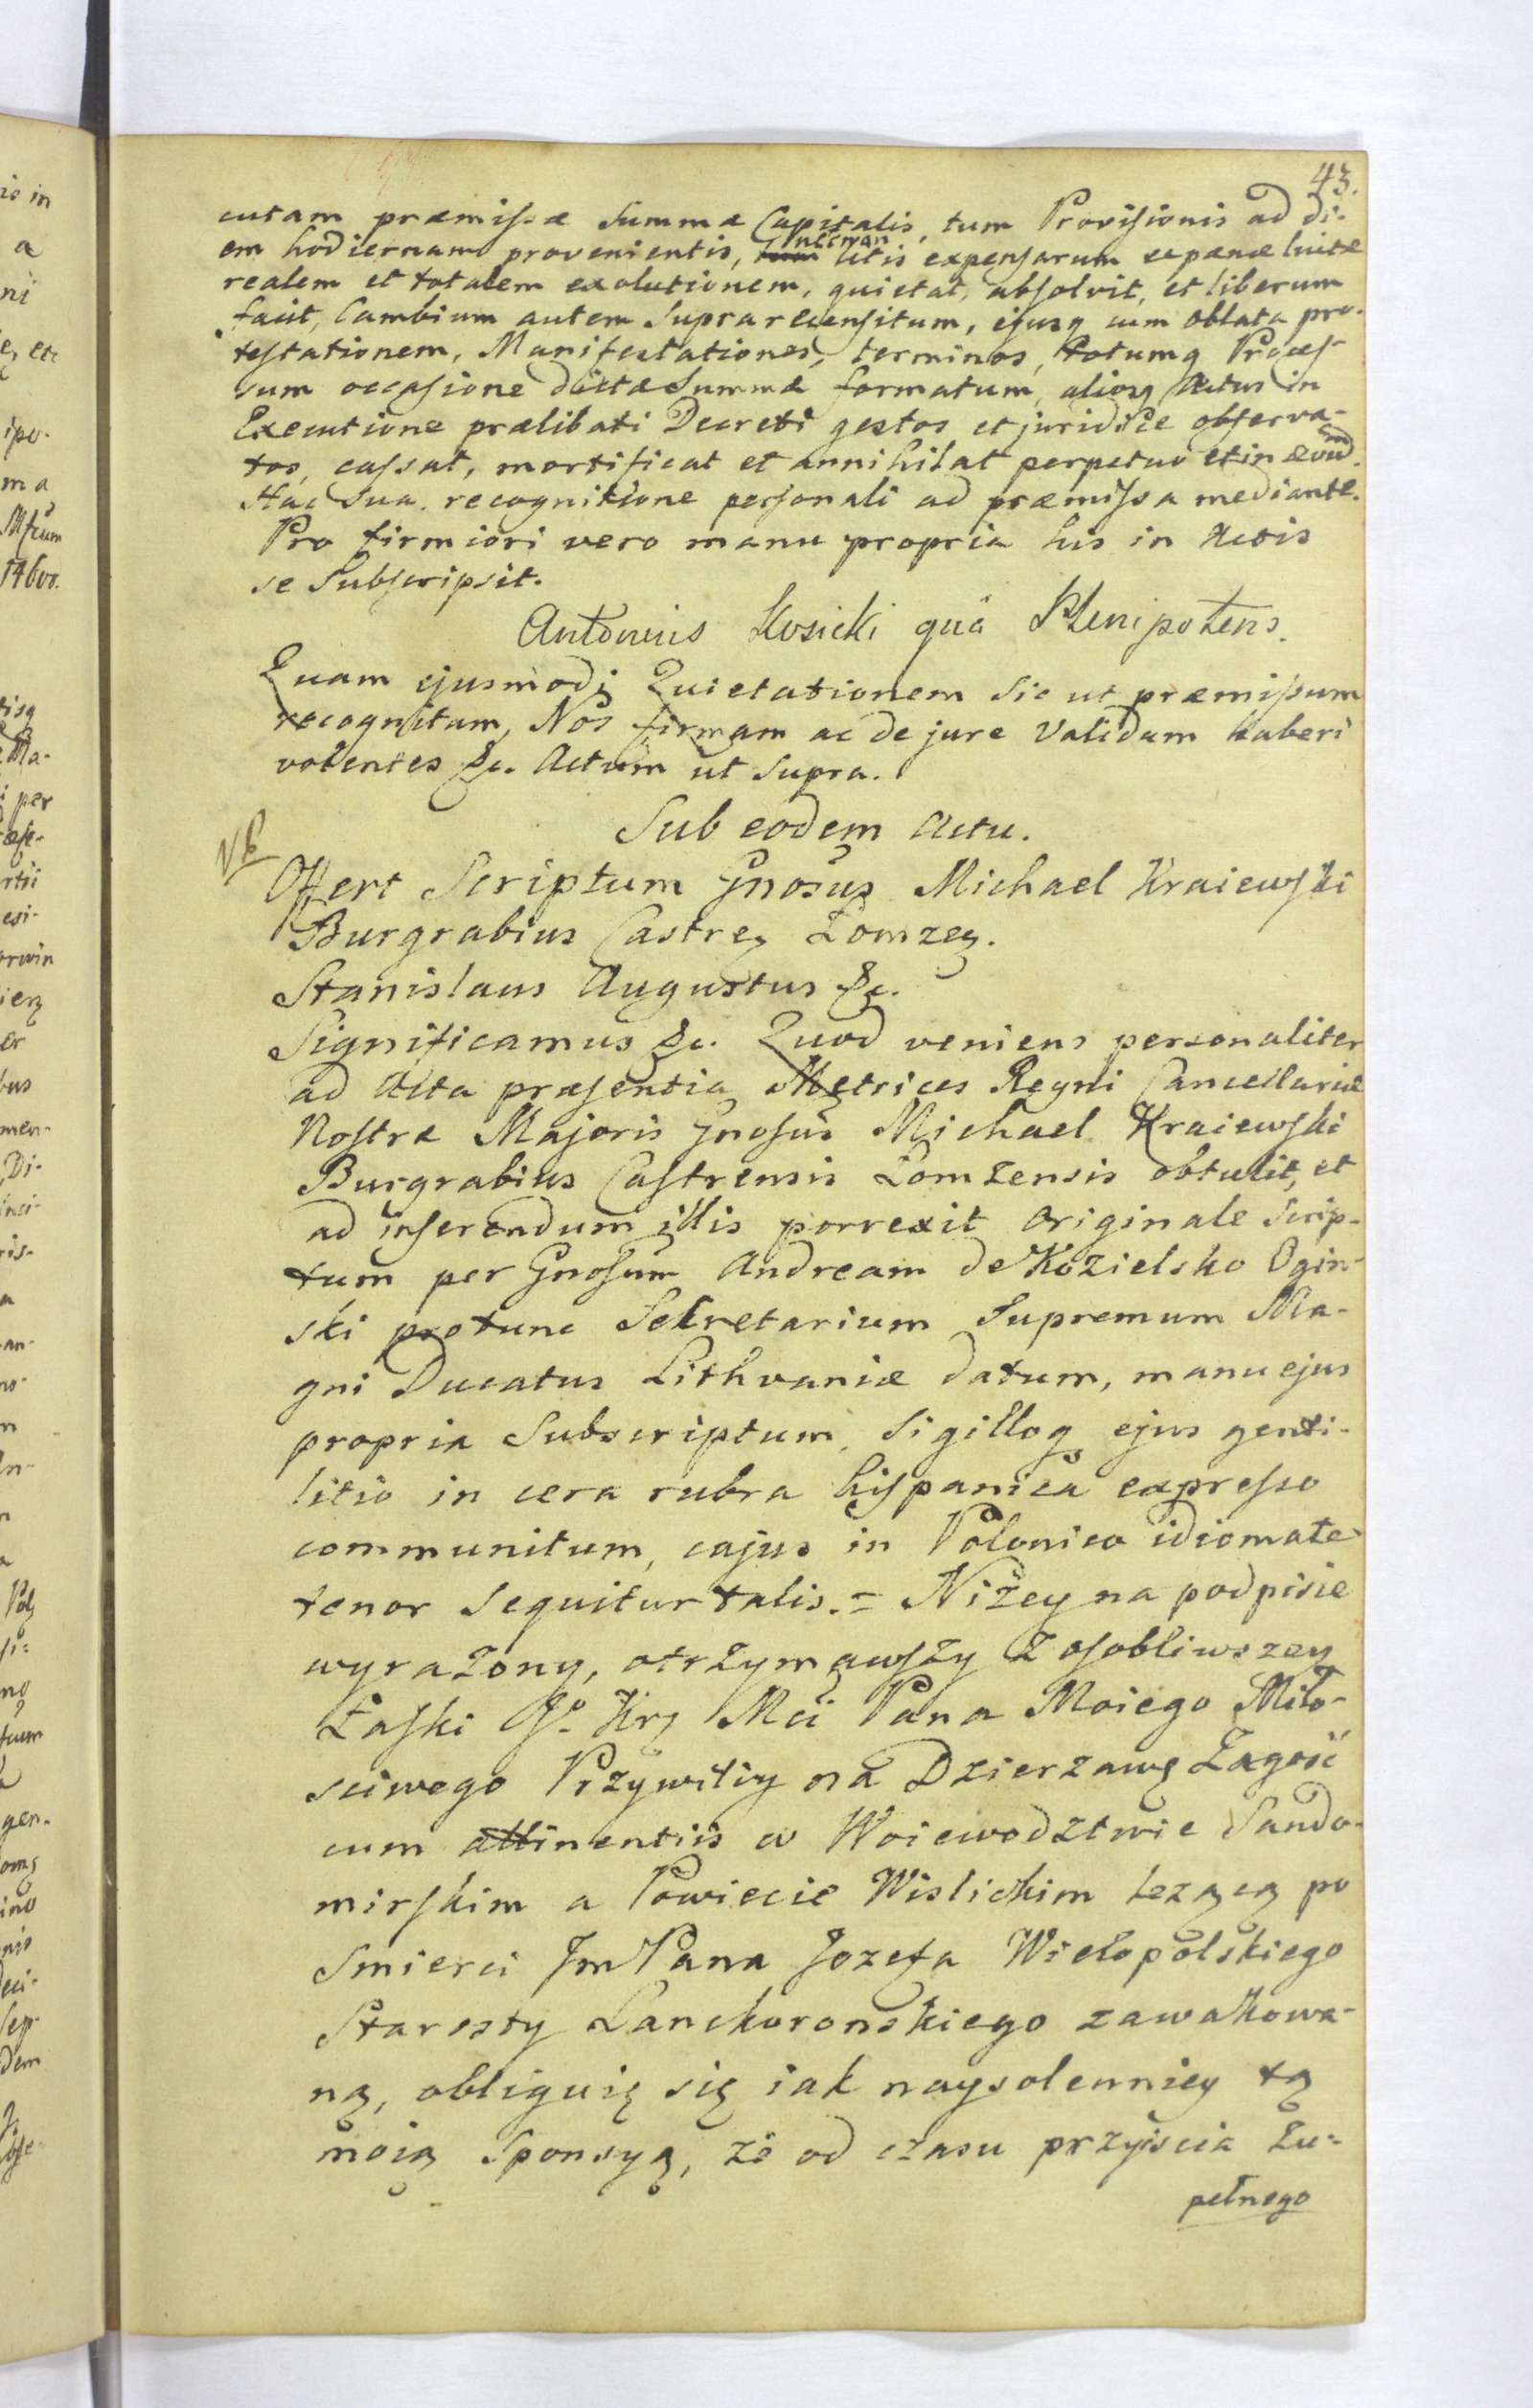 43.
cutam præmissæ Summæ Capitalis, tum Provisionis ad di-
em hodiernam provenientis, necnon litis expensarum ac pænæ luitæ
realem et totalem exolutionem, quietat, absolvit, et liberum
facit, Cambium autem Suprarecensitum, ejusq cum oblata pro-
testationem, Manifestationes, terminos, totumq Proces-
sum occasione dictæ Summæ formatum, aliosq Actus in
Executione prælibati Decreti gestos et juridice observa-
tos, cassat, mortificat et annihilat perpetuo et in ævum.
Hac Sua recognitione personali ad præmissa mediante.
Pro firmiori vero manu propria his in Actis
se Subscripsit.
Antonius Kosicki quà Plenipotens.
Quam ejusmodi Quietationem Sic ut præmissum
recognitam, Nos firmam ac de jure Validam haberi
volentes &c. Actum ut Supra.
Sub eodem Actu.
NB
Offert Scriptum Gnosus Michael Kraiewski
Burgrabius Castreɳ Łomzeɳ.
Stanislaus Augustus &c.
Significamus &c. Quod veniens personaliter
ad Acta præsentia Metrices Regni Cancellariæ
Nostræ Majoris Gnosus Michael Kraiewski
Burgrabius Castrensis Łomzensis obtulit, et
ad inserendum illis porrexit Originale Scrip-
tum per Gnosum Andream de Kozielsko Ogin-
ski protunc Sekretarium Supremum Ma-
gni Ducatus Lithvaniæ datum, manu ejus
propria Subscriptum, Sigilloq ejus genti-
litio in cera rubra hispanica expresso
communitum, cujus in Polonico idiomate
tenor Sequitur talis. = Niżey na podpisie
wyrażony, otrzymawszy z osobliwszey
Łaski Jo Krɳ Mci Pana Moiego Miło-
sciwego Przywiliy na Dzierzawę Zagość
cum attinentiis w Woiewodztwie Sando-
mirskim a Powiecie Wislickim lezącą po
Smierci Jm Pana Jozefa Wielopolskiego
Starosty Lanckoronskiego zawakowa-
ną, obliguię się iak naysolenniey tą
moią Sponsyą, że od czasu przyiscia Zu-
pełnego